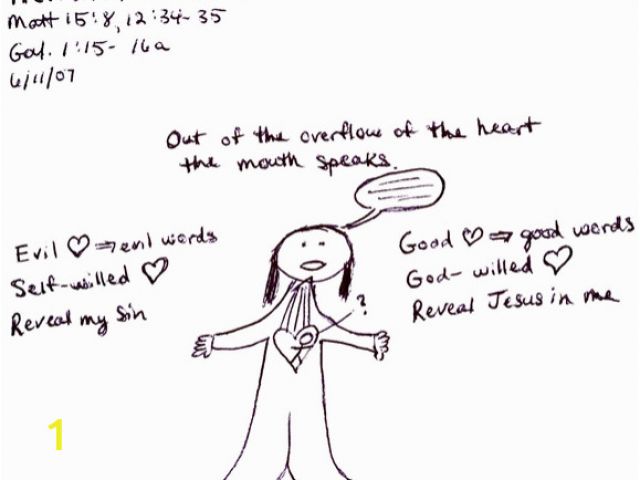 Matt 15:8, 12:34-35
Gal. 1:15- 16a
6/11/07
Out of the overflow of the heart
the mouth speaks.
Evil ♡ ⇒ evil words
Self-willed ♡
Reveal my Sin
Good ♡ ⇒ good words
God-willed ♡
Reveal Jesus in me
?
1